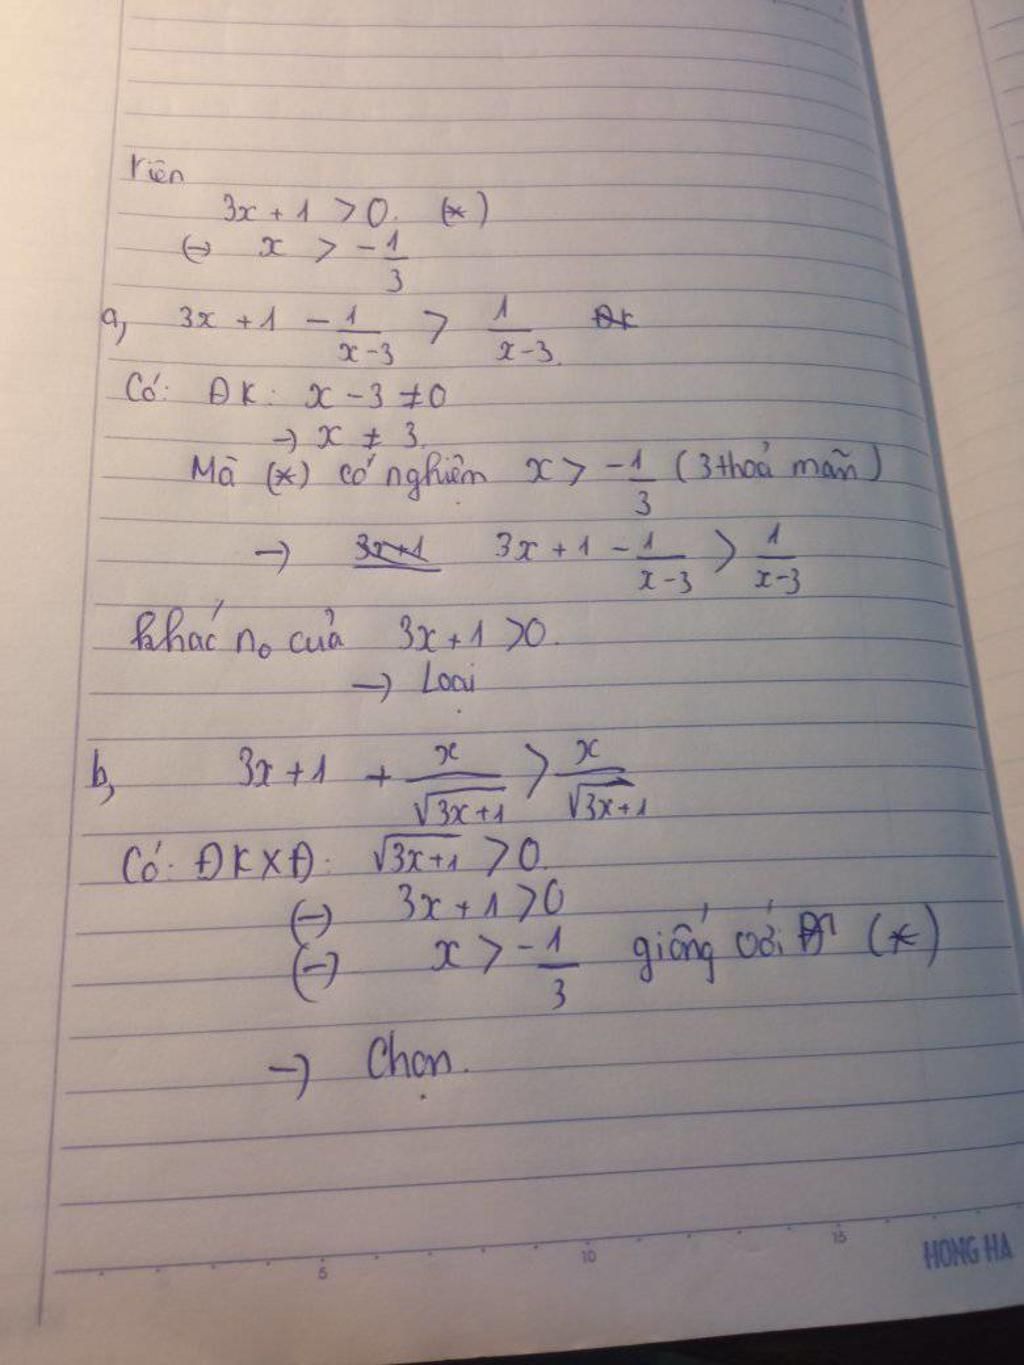 riên
3x + 1 > 0. (*)
(-) x > -1/3
a, 3x + 1 - 1/(x-3) > 1/(x-3). ĐK
Có: ĐK: x - 3 ≠ 0
-> x ≠ 3.
Mà (*) có nghiệm x > -1/3 (3 thoả mãn)
-> 3x+1 3x + 1 - 1/(x-3) > 1/(x-3)
khác n₀ của 3x + 1 > 0.
-> Loại
b, 3x + 1 + x/√(3x+1) > x/√(3x+1)
Có: ĐKXĐ: √(3x+1) > 0.
(-) 3x + 1 > 0
(-) x > -1/3 giống với (*)
-> Chọn.
5 10 15
HONG HA